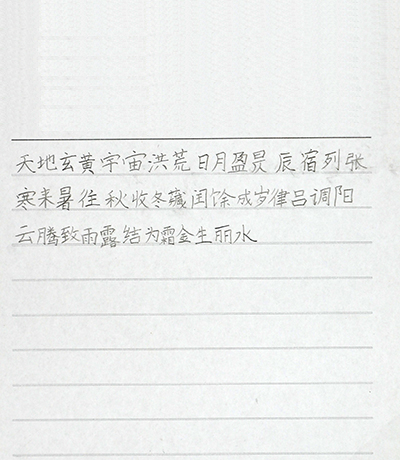 天地玄黄宇宙洪荒日月盈昃辰宿列张
寒来暑往秋收冬藏闰馀成岁律吕调阳
云腾致雨露结为霜金生丽水